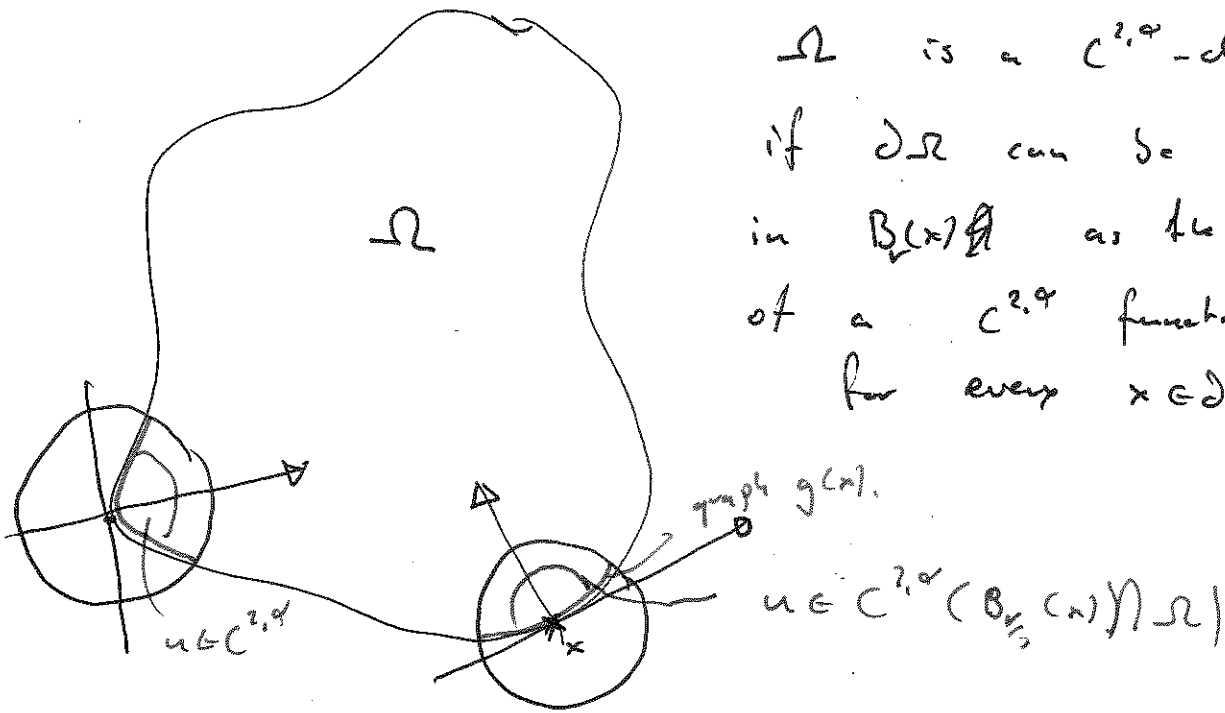 Ω is a C^{2,α} -d
if ∂Ω can be
in B_r(x) as the
of a C^{2,α} funct
for every x ∈ ∂
Ω
graph g(x).
u ∈ C^{2,α} (B_{r/2}(x) ∩ Ω)
u ∈ C^{2,α}
x